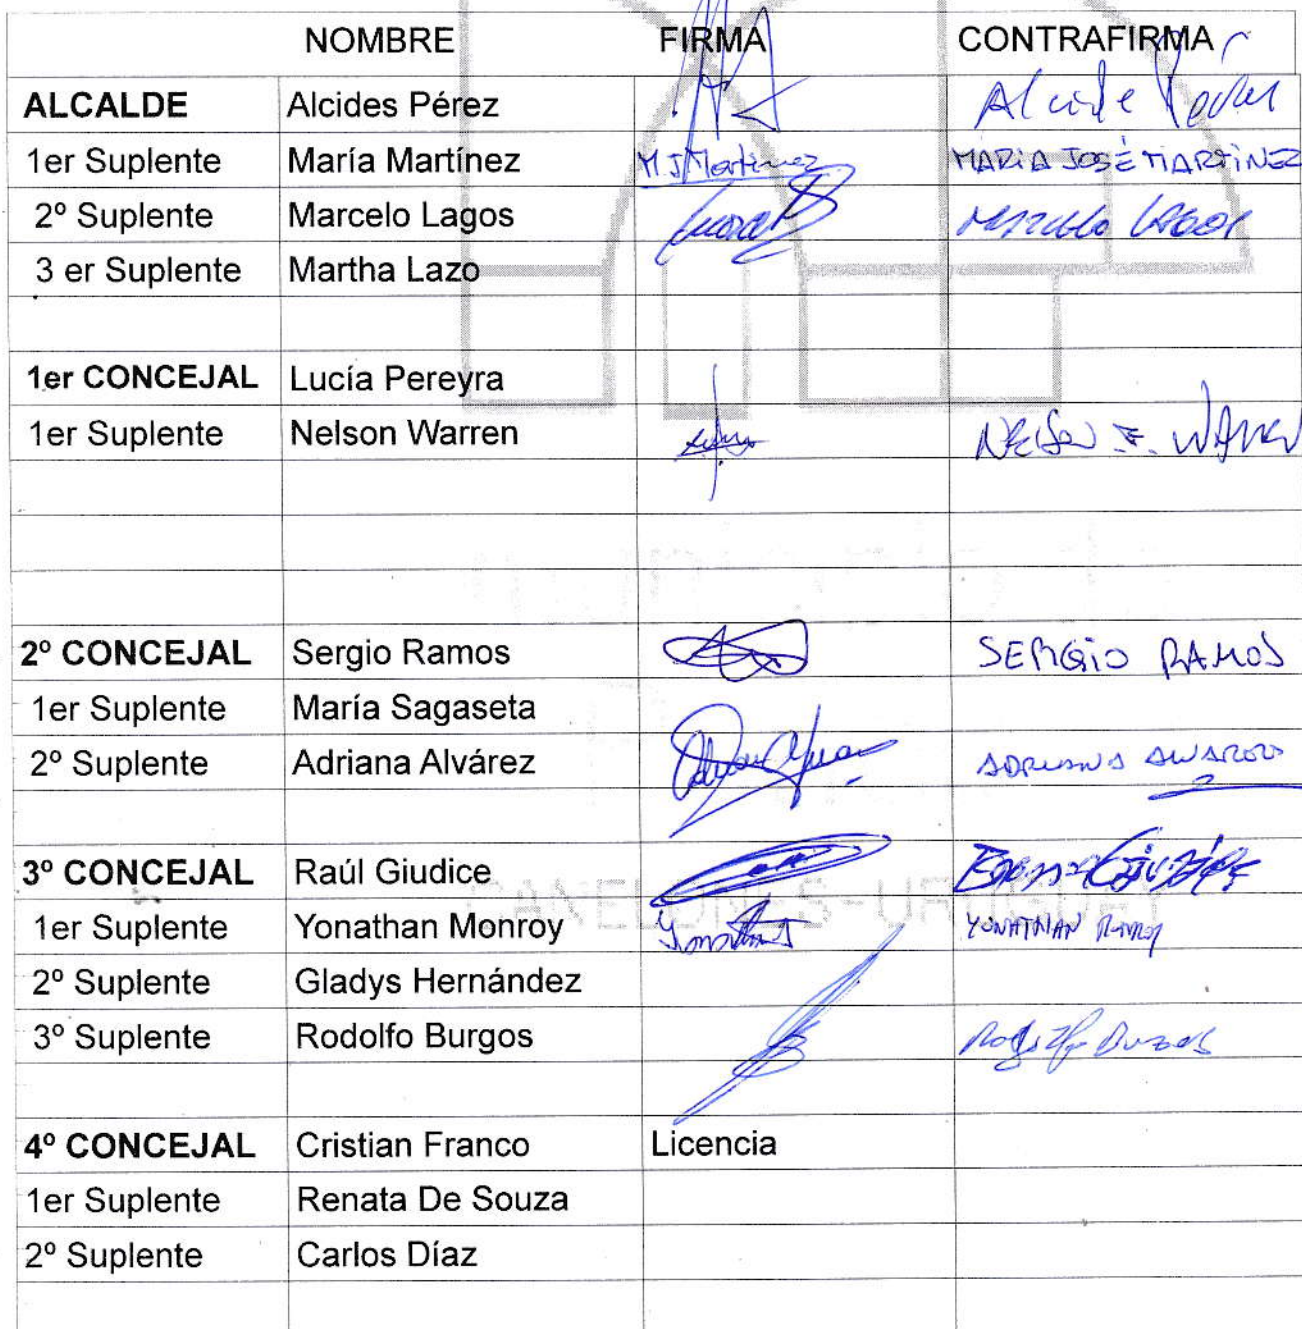 NOMBRE FIRMA CONTRAFIRMA
ALCALDE Alcides Pérez Alcide
1er Suplente María Martínez M J Martinez MARÍA JOSÉ MARTÍNEZ
2º Suplente Marcelo Lagos Marcelo Lagos
3 er Suplente Martha Lazo
1er CONCEJAL Lucía Pereyra
1er Suplente Nelson Warren NELSON F. WARREN
2º CONCEJAL Sergio Ramos SERGIO RAMOS
1er Suplente María Sagaseta
2º Suplente Adriana Alvárez ADRIANA ALVAREZ
3º CONCEJAL Raúl Giudice
1er Suplente Yonathan Monroy YONATHAN
2º Suplente Gladys Hernández
3º Suplente Rodolfo Burgos Rodolfo Burgos
CANELONES-URUGUAY
4º CONCEJAL Cristian Franco Licencia
1er Suplente Renata De Souza
2º Suplente Carlos Díaz